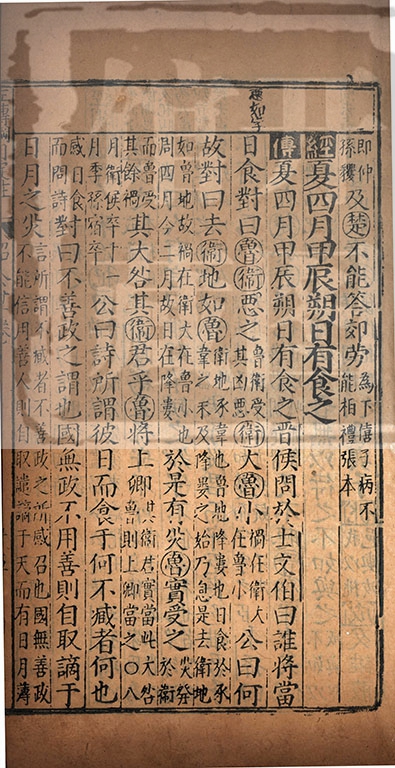 即仲孫貜及楚不能答郊勞為下僖子病不能相禮張本
經夏四月甲辰朔日有食之
傳夏四月甲辰朔日有食之晉侯問於士文伯曰誰將當
日食對曰魯衞惡之魯衛受其凶惡衞大魯小禍在衛大在魯小公曰何
故對曰去衞地如魯衛地豕韋也魯地降婁也日食於豕韋之末及降婁之始乃息是去衛地
如魯地故禍在衛大在魯小也周四月今二月故日在降婁於是有災魯實受之災發於衛
而魯受其餘禍其大咎其衞君乎魯將上卿其衛君實當此大咎魯則上卿當之○八
月衛侯卒十一月季孫宿卒公曰詩所謂彼日而食于何不臧者何也
感日食而問詩對曰不善政之謂也國無政不用善則自取謫于
日月之災言所謂不臧者不善政之所感召也國無善政不能信用善人則自取譴謫于天而有日月薄